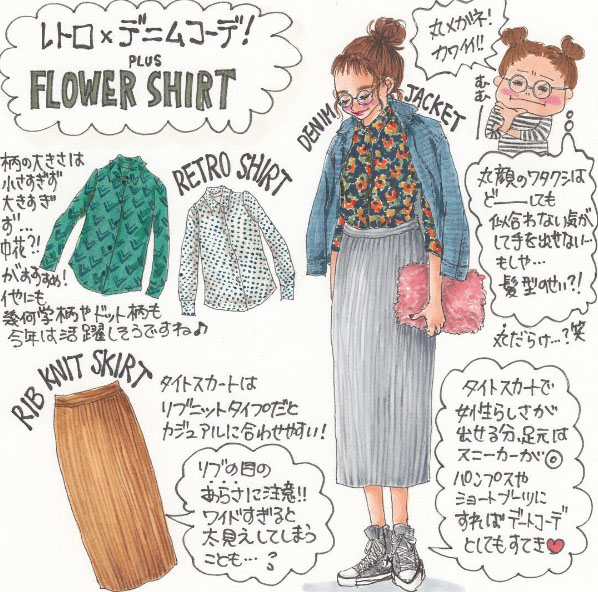 レトロ×デニムコーデ!
PLUS
FLOWER SHIRT
丸メガネ!
カワイイ!!
むむ…
DENIM JACKET
RETRO SHIRT
柄の大きさは
小さすぎず
大きすぎ
ず…
中花?!
がおすすめ!
イヤにも
幾何学柄やドット柄も
今年は活躍しそうですね♪
丸顔のワタクシは
どーーしても
似合わない気が
して手を出せない…
もしや…
髪型のせい?!
丸だらけ…?笑
RIB KNIT SKIRT
タイトスカートは
リブニットタイプだと
カジュアルに合わせやすい!
リブの目の
あらさに注意!!
ワイドすぎると
太見えしてしまう
ことも…?
タイトスカートで
女性らしさが
出せる分、足元は
スニーカーが◎
パンプスや
ショートブーツに
すればデートコーデ
としてもすてき♥